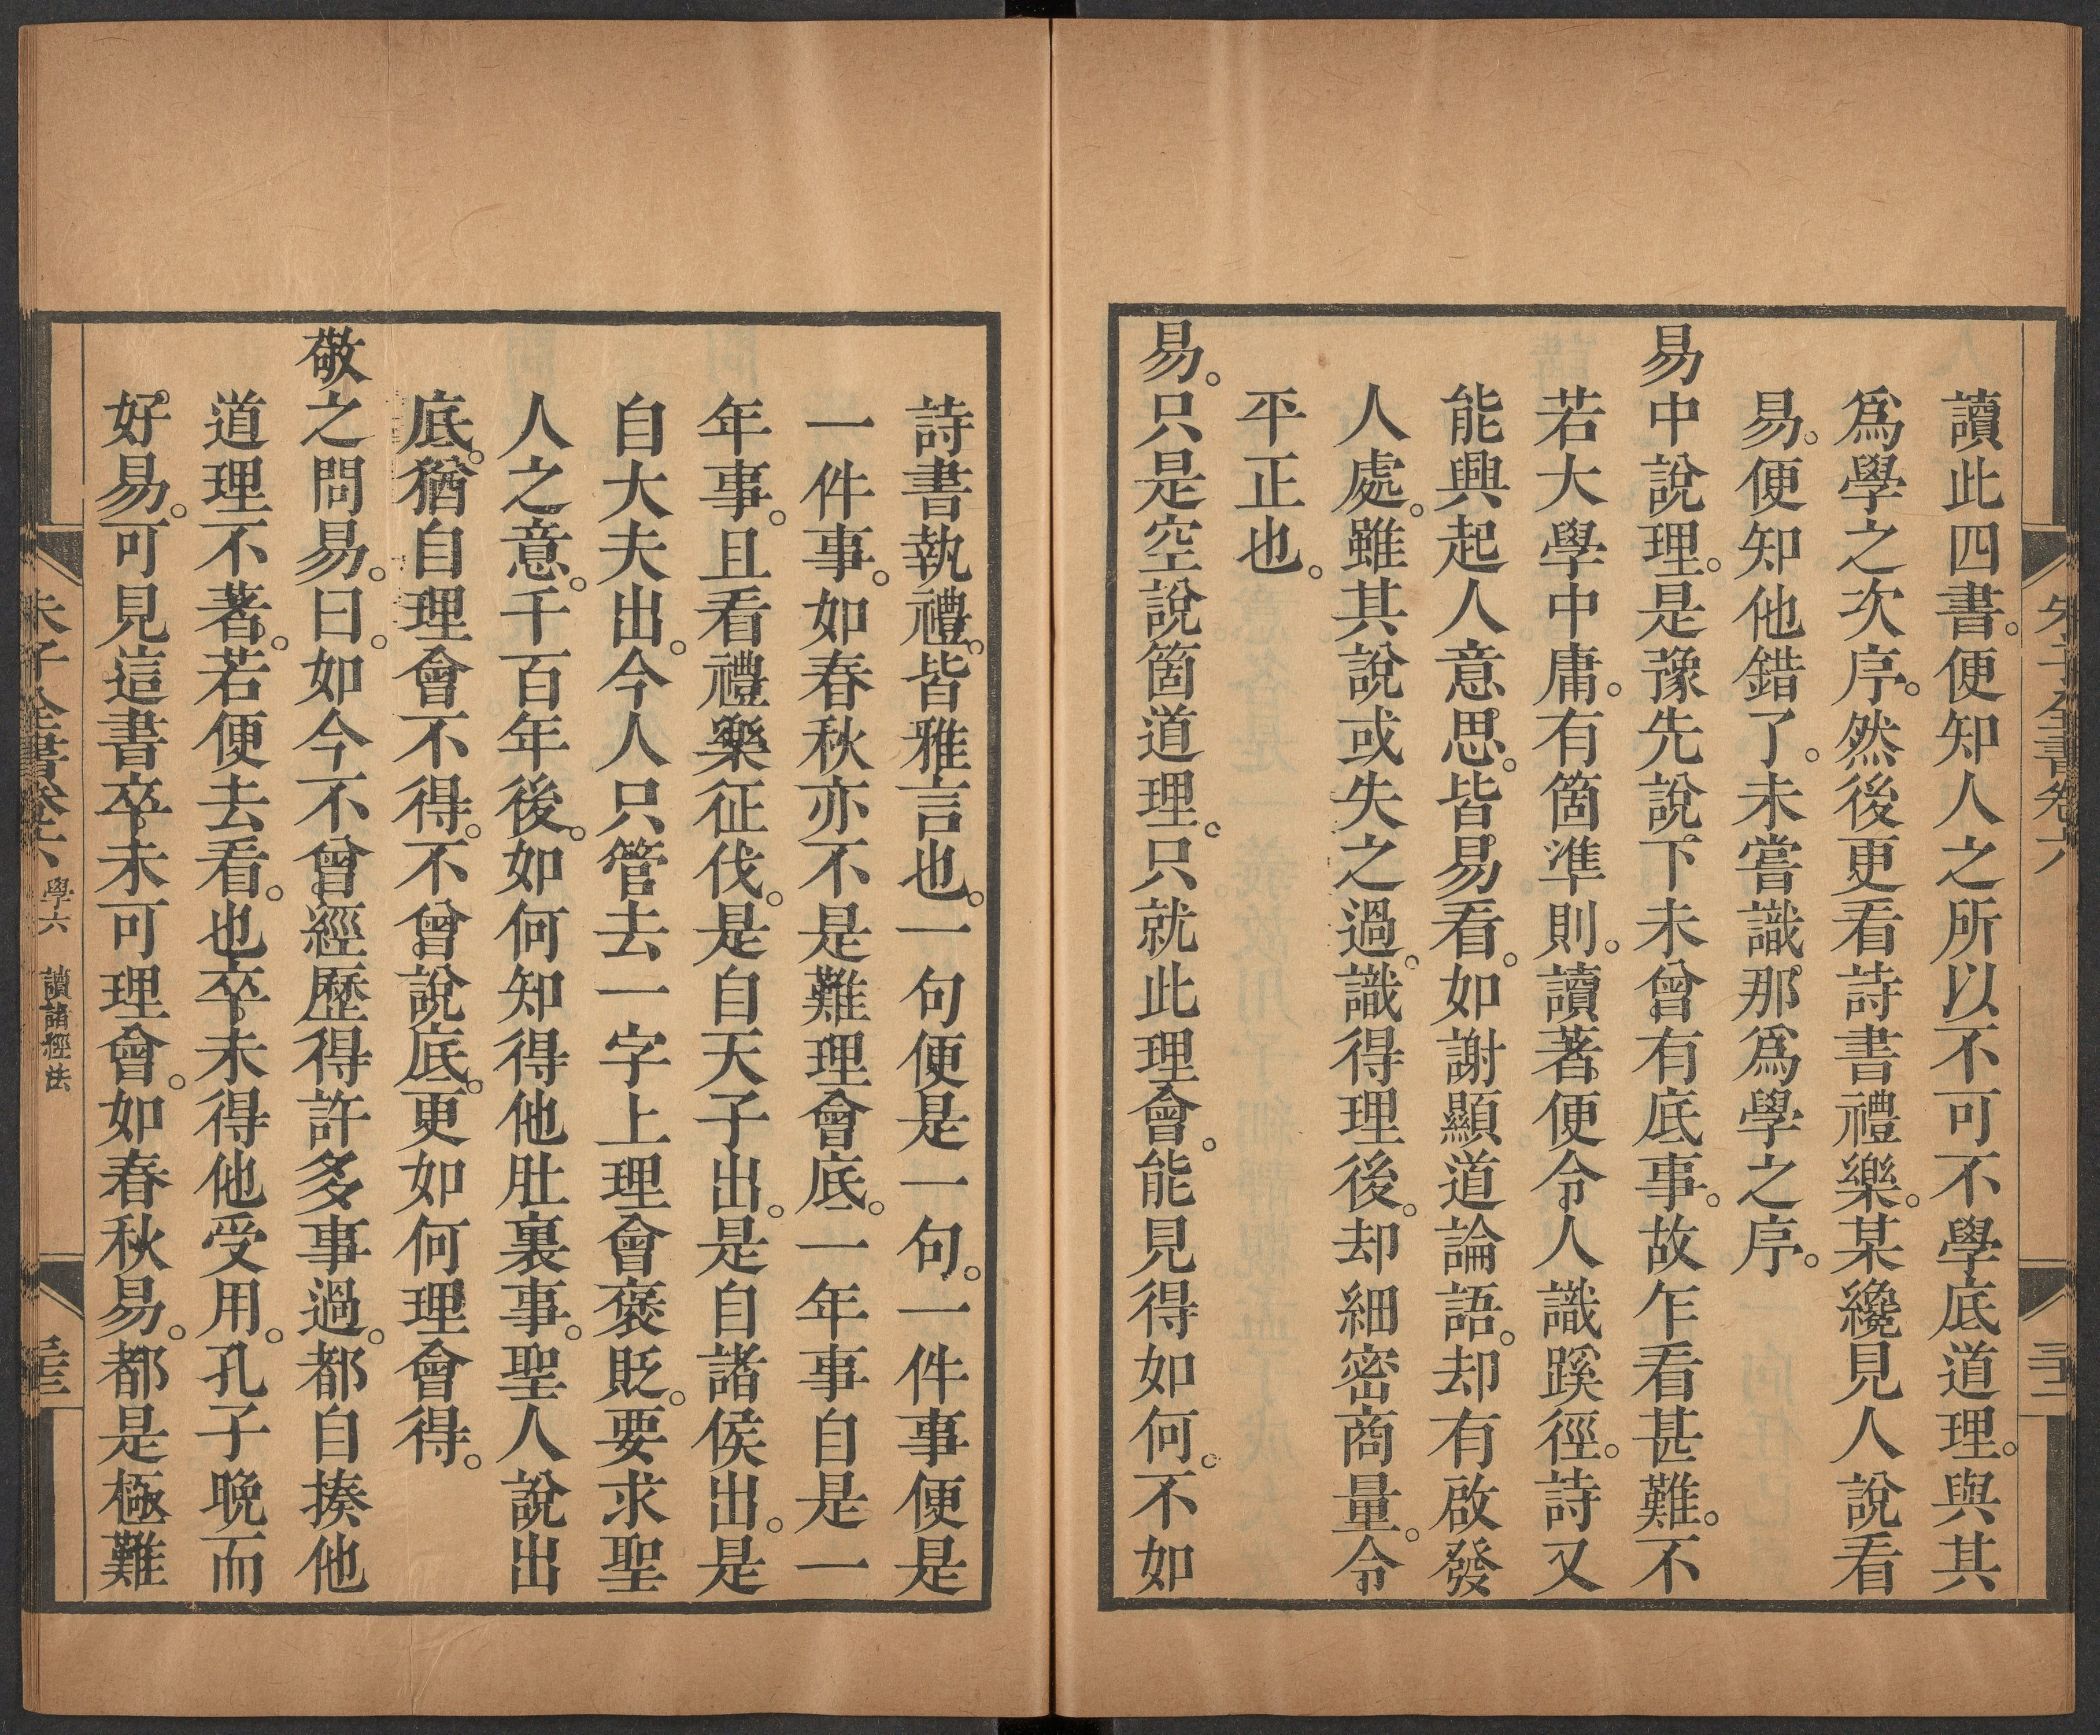 朱子全書卷六
讀此四書。便知人之所以不可不學底道理。與其
爲學之次序。然後更看詩書禮樂。某纔見人說看
易。便知他錯了。未嘗識那爲學之序。
易中說理。是豫先說下未曾有底事。故乍看甚難。不
若大學中庸。有箇準則。讀著便令人識蹊徑。詩又
能興起人意思。皆易看。如謝顯道論語。却有啟發
人處。雖其說或失之過。識得理後。却細密商量。令
平正也。
易。只是空說箇道理。只就此理會。能見得如何。不如
詩書執禮。皆雅言也。一句便是一句。一件事便是
一件事。如春秋亦不是難理會底。一年事自是一
年事。且看禮樂征伐。是自天子出。是自諸侯出。是
自大夫出。今人只管去一字上理會褒貶。要求聖
人之意。千百年後。如何知得他肚裏事。聖人說出
底。猶自理會不得。不曾說底。更如何理會得。
敬之問易。曰。如今不曾經歷得許多事過。都自揍他
道理不著。若便去看。也卒未得他受用。孔子晚而
好易。可見這書卒未可理會。如春秋易。都是極難
朱子全書卷六 學六 讀諸經法